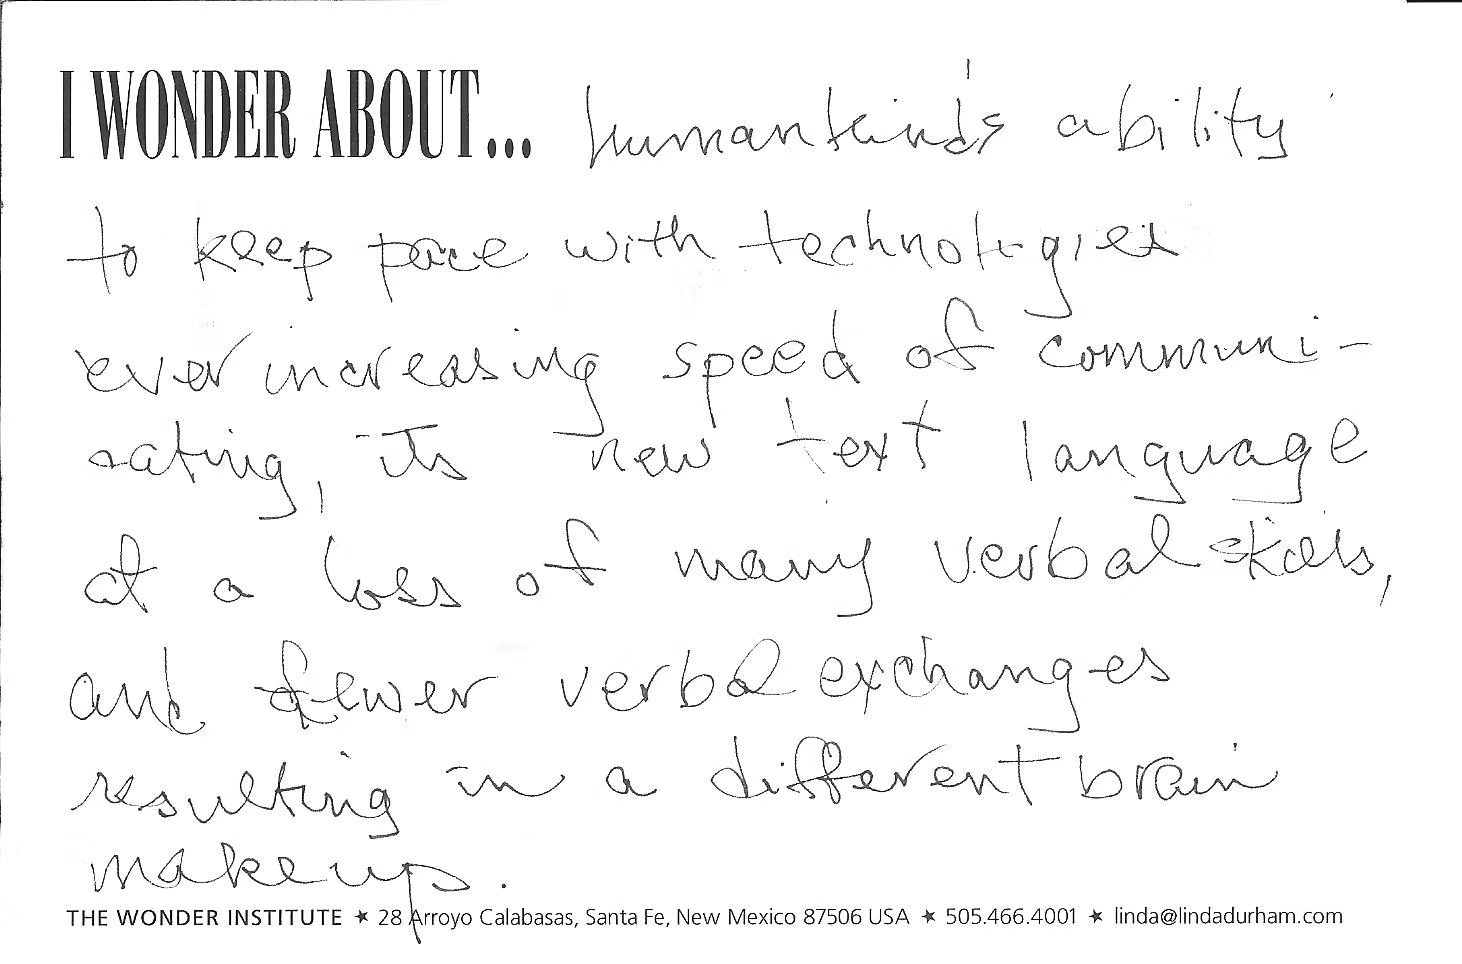 I WONDER ABOUT... humankind's ability
to keep pace with technologies
ever increasing speed of communi-
cating, its new text language
at a loss of many verbal skills,
and fewer verbal exchanges
resulting in a different brain
makeup.
THE WONDER INSTITUTE ★ 28 Arroyo Calabasas, Santa Fe, New Mexico 87506 USA ★ 505.466.4001 ★ linda@lindadurham.com